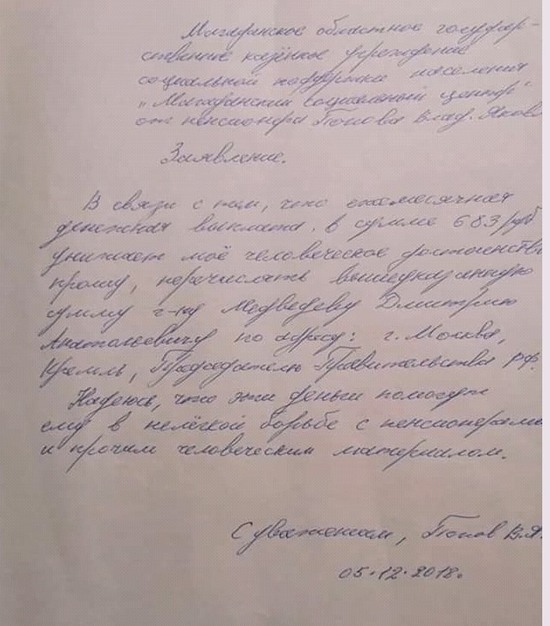 Магаданское областное государ-
ственное казённое учреждение
социальной поддержки населения
"Магаданский социальный центр"
от пенсионера Попова Влад. Яков
Заявление.
В связи с тем, что ежемесячная
денежная выплата в сумме 683 руб
унижает моё человеческое достоинство
прошу, перечислять вышеуказанную
сумму г-ну Медведеву Дмитрию
Анатольевичу по адресу: г. Москва,
Кремль, Председателю Правительства РФ.
Надеюсь, что эти деньги помогут
ему в нелёгкой борьбе с пенсионерами
и прочим человеческим материалом.
С уважением, Попов В.Я.
05.12.2018.